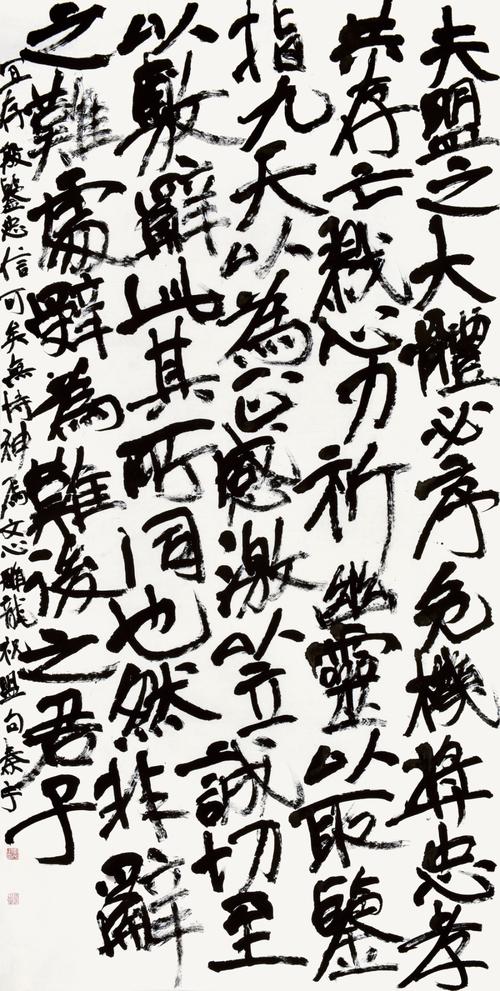 夫盟之大體必序危機獎忠孝
共存亡戮心力祈幽靈以取鑒
指九天以為正感激以立誠切至
以敷辭此其所同也然非辭
之難處辭為難後之君子
宜存殷鑒忠信可矣無恃神焉文心雕龍祝盟句秦